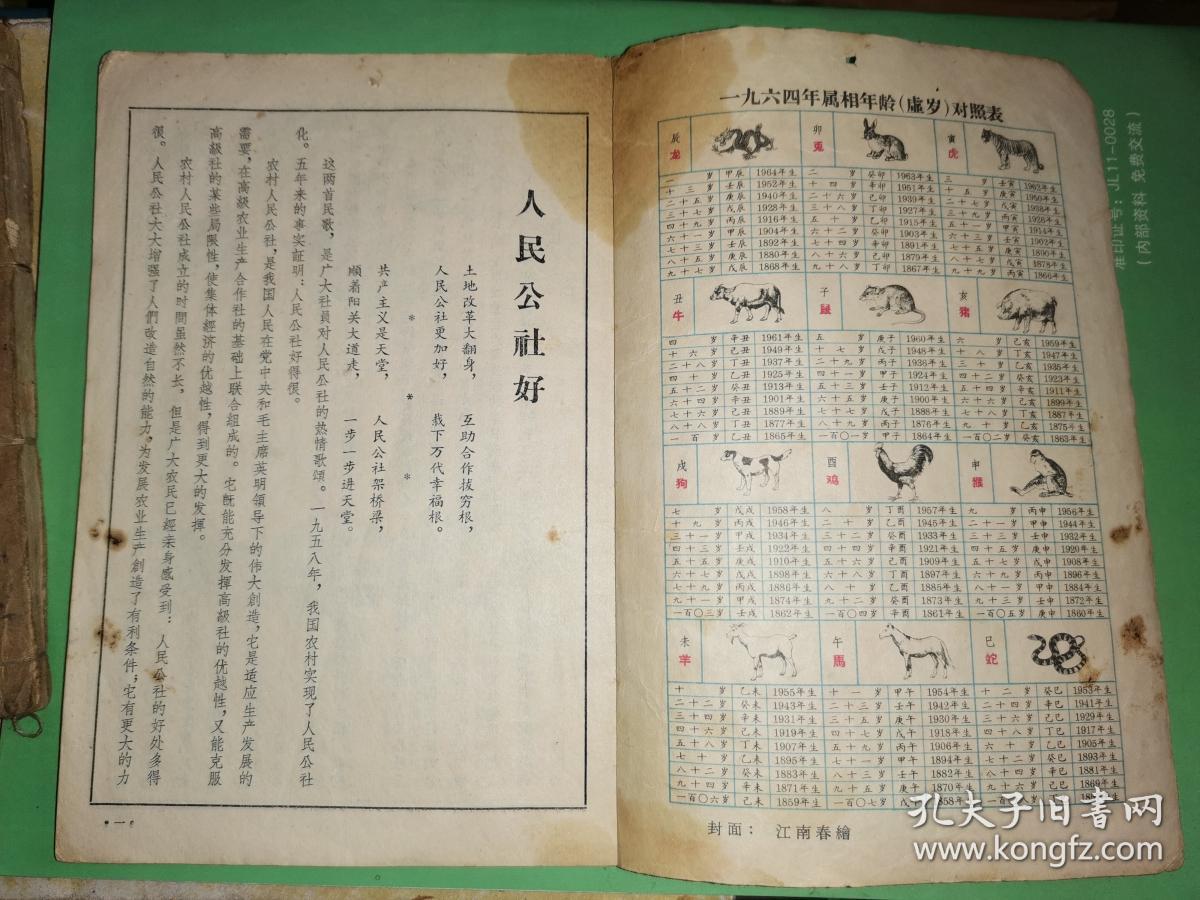 人民公社好
土地改革大翻身，　互助合作拔穷根，
人民公社更加好，　栽下万代幸福根。
* * *
共产主义是天堂，　人民公社架桥梁，
顺着阳关大道走，　一步一步进天堂。
这两首民歌，是广大社員对人民公社的热情歌頌。一九五八年，我国农村实现了人民公社
化。五年来的事实証明：人民公社好得很。
农村人民公社，是我国人民在党中央和毛主席英明領导下的伟大創造，它是适应生产发展的
需要，在高級农业生产合作社的基础上联合組成的。它既能充分发揮高級社的优越性，又能克服
高級社的某些局限性，使集体經济的优越性，得到更大的发揮。
农村人民公社成立的时間虽然不长，但是广大农民已經亲身感受到：人民公社的好处多得
很。人民公社大大增强了人們改造自然的能力。为发展农业生产創造了有利条件；它有更大的力
•一•
一九六四年属相年龄（虚岁）对照表
辰 龙 卯 兎 寅 虎
一岁 甲辰 1964年生 二岁 癸卯 1963年生 三岁 壬寅 1962年生
十三岁 壬辰 1952年生 十四岁 辛卯 1951年生 十五岁 庚寅 1950年生
二十五岁 庚辰 1940年生 二十六岁 己卯 1939年生 二十七岁 戊寅 1938年生
三十七岁 戊辰 1928年生 三十八岁 丁卯 1927年生 三十九岁 丙寅 1926年生
四十九岁 丙辰 1916年生 五十岁 乙卯 1915年生 五十一岁 甲寅 1914年生
六十一岁 甲辰 1904年生 六十二岁 癸卯 1903年生 六十三岁 壬寅 1902年生
七十三岁 壬辰 1892年生 七十四岁 辛卯 1891年生 七十五岁 庚寅 1890年生
八十五岁 庚辰 1880年生 八十六岁 己卯 1879年生 八十七岁 戊寅 1878年生
九十七岁 戊辰 1868年生 九十八岁 丁卯 1867年生 九十九岁 丙寅 1866年生
丑 牛 子 鼠 亥 猪
四岁 辛丑 1961年生 五岁 庚子 1960年生 六岁 己亥 1959年生
十六岁 己丑 1949年生 十七岁 戊子 1948年生 十八岁 丁亥 1947年生
二十八岁 丁丑 1937年生 二十九岁 丙子 1936年生 三十岁 乙亥 1935年生
四十岁 乙丑 1925年生 四十一岁 甲子 1924年生 四十二岁 癸亥 1923年生
五十二岁 癸丑 1913年生 五十三岁 壬子 1912年生 五十四岁 辛亥 1911年生
六十四岁 辛丑 1901年生 六十五岁 庚子 1900年生 六十六岁 己亥 1899年生
七十六岁 己丑 1889年生 七十七岁 戊子 1888年生 七十八岁 丁亥 1887年生
八十八岁 丁丑 1877年生 八十九岁 丙子 1876年生 九十岁 乙亥 1875年生
一百岁 乙丑 1865年生 一百〇一岁 甲子 1864年生 一百〇二岁 癸亥 1863年生
戌 狗 酉 鸡 申 猴
七岁 戊戌 1958年生 八岁 丁酉 1957年生 九岁 丙申 1956年生
十九岁 丙戌 1946年生 二十岁 乙酉 1945年生 二十一岁 甲申 1944年生
三十一岁 甲戌 1934年生 三十二岁 癸酉 1933年生 三十三岁 壬申 1932年生
四十三岁 壬戌 1922年生 四十四岁 辛酉 1921年生 四十五岁 庚申 1920年生
五十五岁 庚戌 1910年生 五十六岁 己酉 1909年生 五十七岁 戊申 1908年生
六十七岁 戊戌 1898年生 六十八岁 丁酉 1897年生 六十九岁 丙申 1896年生
七十九岁 丙戌 1886年生 八十岁 乙酉 1885年生 八十一岁 甲申 1884年生
九十一岁 甲戌 1874年生 九十二岁 癸酉 1873年生 九十三岁 壬申 1872年生
一百〇三岁 壬戌 1862年生 一百〇四岁 辛酉 1861年生 一百〇五岁 庚申 1860年生
未 羊 午 馬 巳 蛇
十岁 乙未 1955年生 十一岁 甲午 1954年生 十二岁 癸巳 1953年生
二十二岁 癸未 1943年生 二十三岁 壬午 1942年生 二十四岁 辛巳 1941年生
三十四岁 辛未 1931年生 三十五岁 庚午 1930年生 三十六岁 己巳 1929年生
四十六岁 己未 1919年生 四十七岁 戊午 1918年生 四十八岁 丁巳 1917年生
五十八岁 丁未 1907年生 五十九岁 丙午 1906年生 六十岁 乙巳 1905年生
七十岁 乙未 1895年生 七十一岁 甲午 1894年生 七十二岁 癸巳 1893年生
八十二岁 癸未 1883年生 八十三岁 壬午 1882年生 八十四岁 辛巳 1881年生
九十四岁 辛未 1871年生 九十五岁 庚午 1870年生 1869年生
一百〇六岁 己未 1859年生 一百〇七岁 戊午 1858年生
封面：　江南春繪
准印证号：JL11-0028
（内部资料 免费交流）
孔夫子旧书网
www.kongfz.com